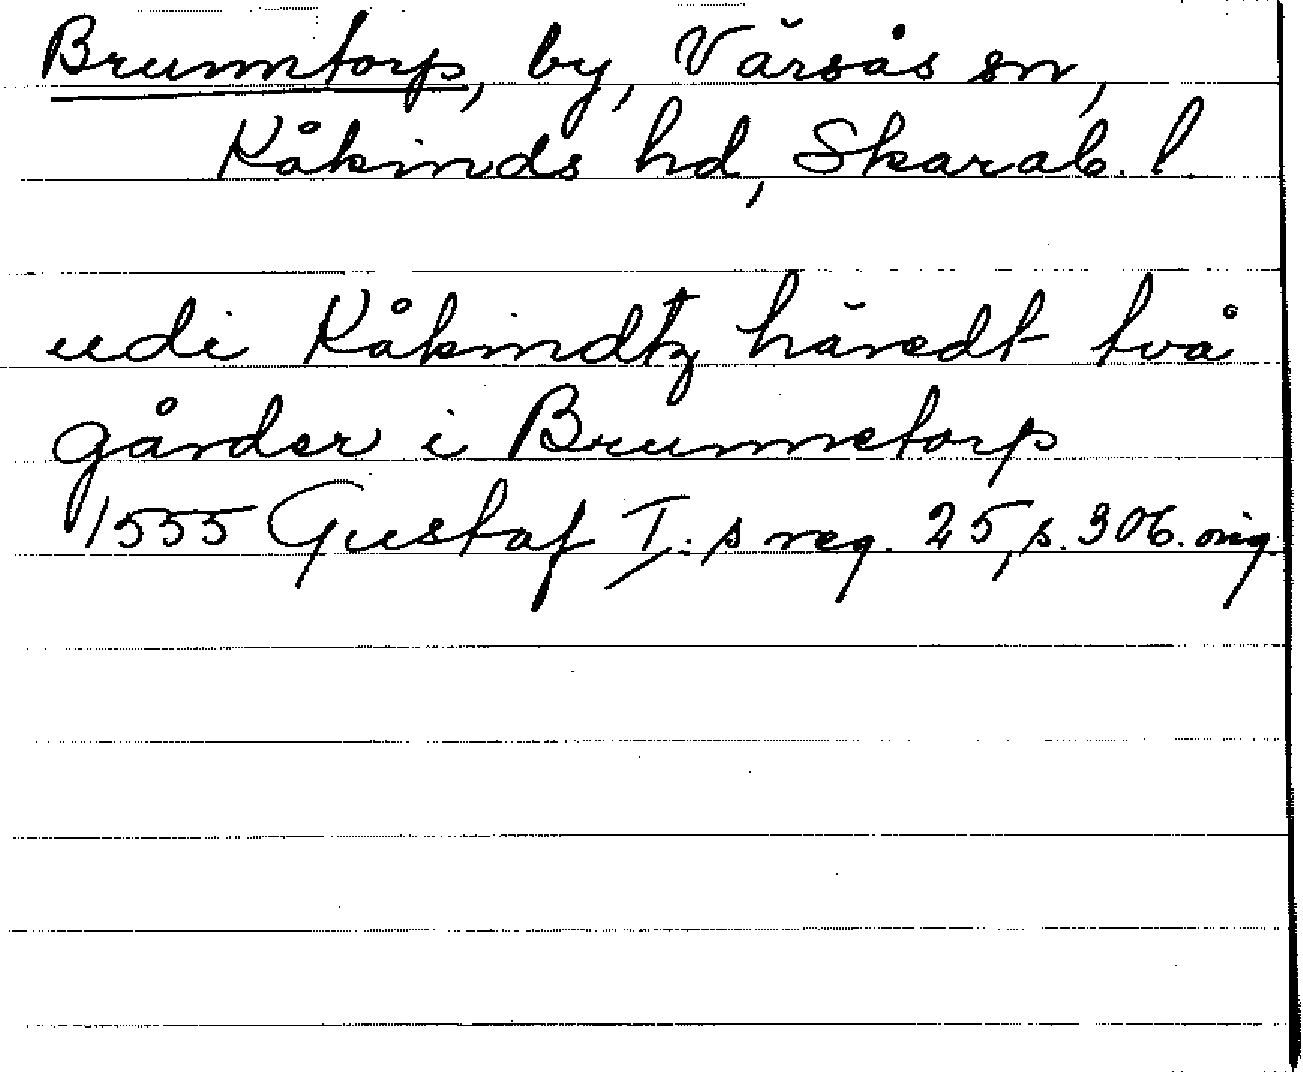 Brumtorp, by, Värsås sn,
Kåkinds hd, Skarab. l.
udi Kåkindtz häredt två
gårder i Brumetorp
1555 Gustaf I:s reg. 25, s. 306. orig.